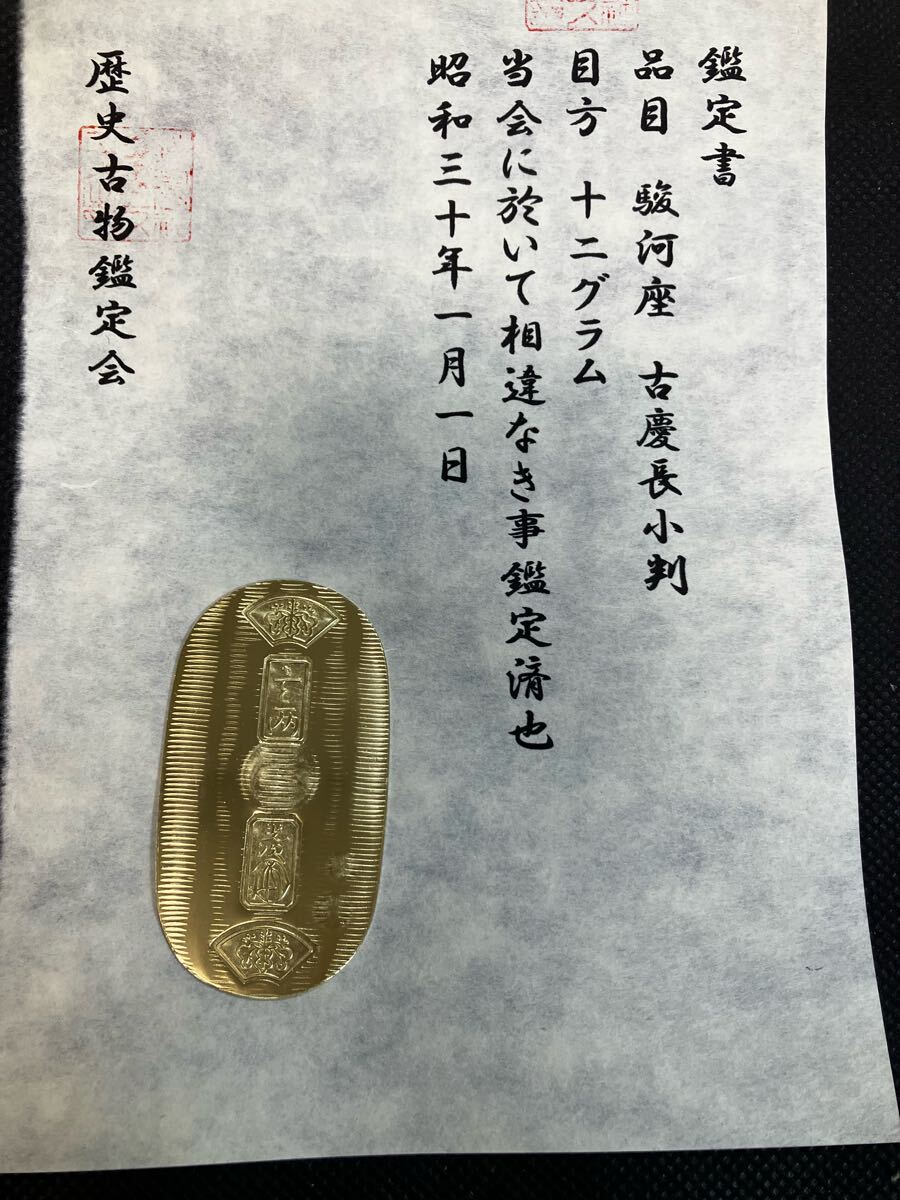 鑑定書
品目 駿河座 古慶長小判
目方 十二グラム
当会に於いて相違なき事鑑定済也
昭和三十年一月一日
歴史古物鑑定会
壹両